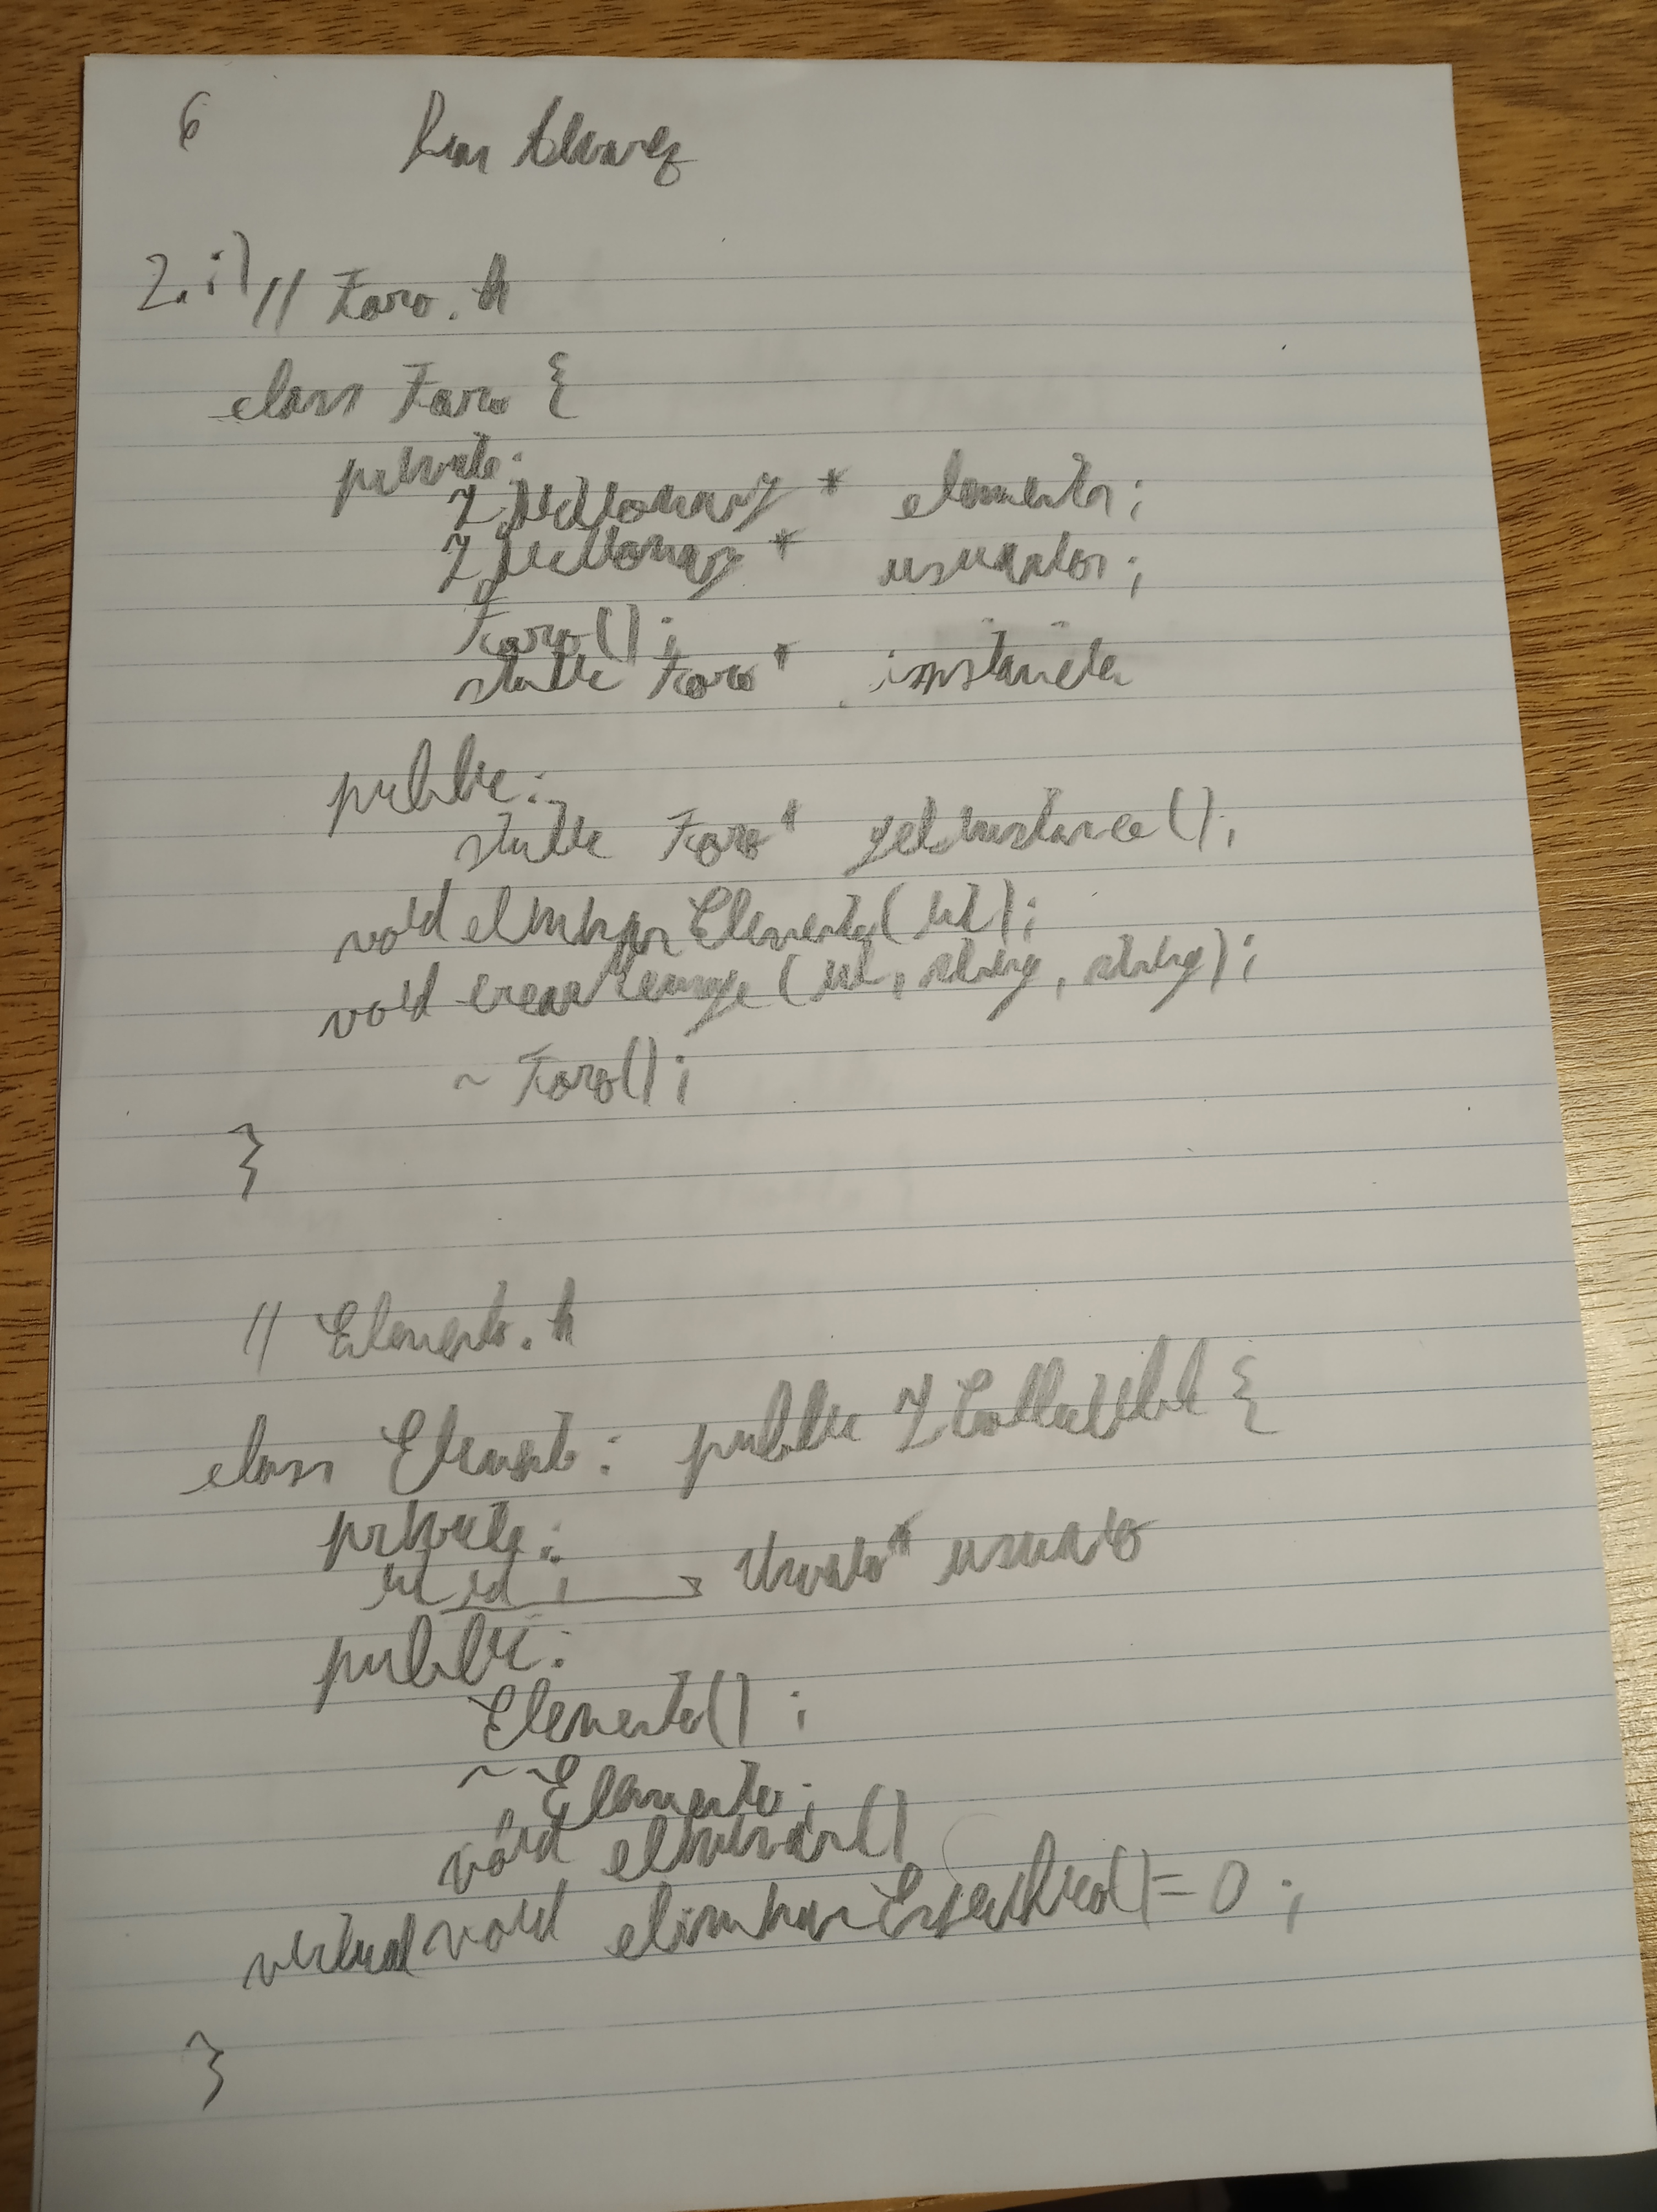 6 Alvarez
2.i) // Foro.h
class Foro {
private:
IDictionary * elementos;
IDictionary * usuarios;
Foro();
static Foro * instancia
public:
static Foro * getInstance();
void eliminarElemento(int);
void crearMensaje (int, string, string);
~ Foro();
}
// Elemento.h
class Elemento : public ICollectible {
private:
int id; → Usuario* usuario
public:
Elemento();
~ Elemento;
void eliminar()
virtual void eliminarEspecifico() = 0;
}